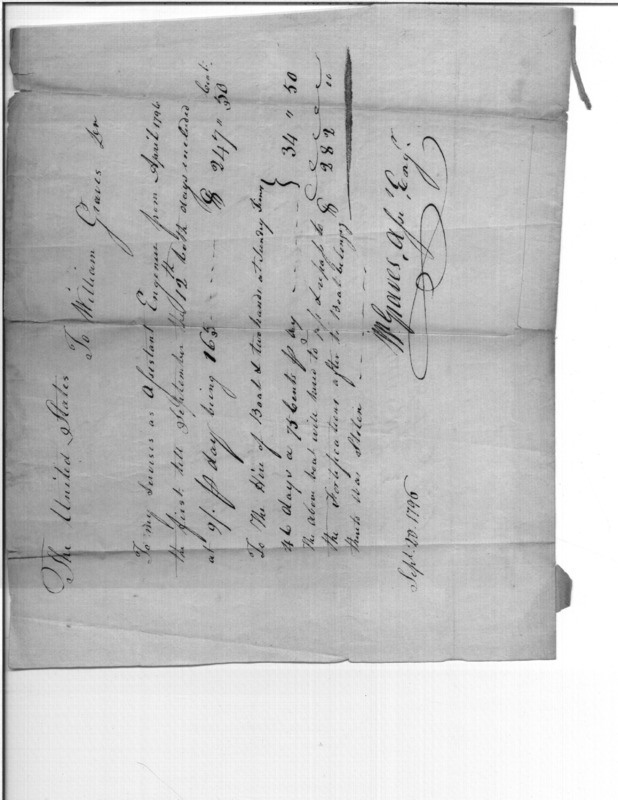 The United States
To William Graves Dr
To my Services as Assistant Engeneer from April 1796
the first till September the 12th both days included Cent:
at 9/. P day being 165 - - - - - $ 247 " 50
To The Hire of Boat & two hands at sundry times
46 days a 75 Cents P day - - - - - - } 34 " 50
the above boat was hired to pass & repass to $ 282 00
the Fortifications after the Boat belonging
thereto Was Stolen
Wm Graves, Assi. Eng.r
Sept. 20. 1796